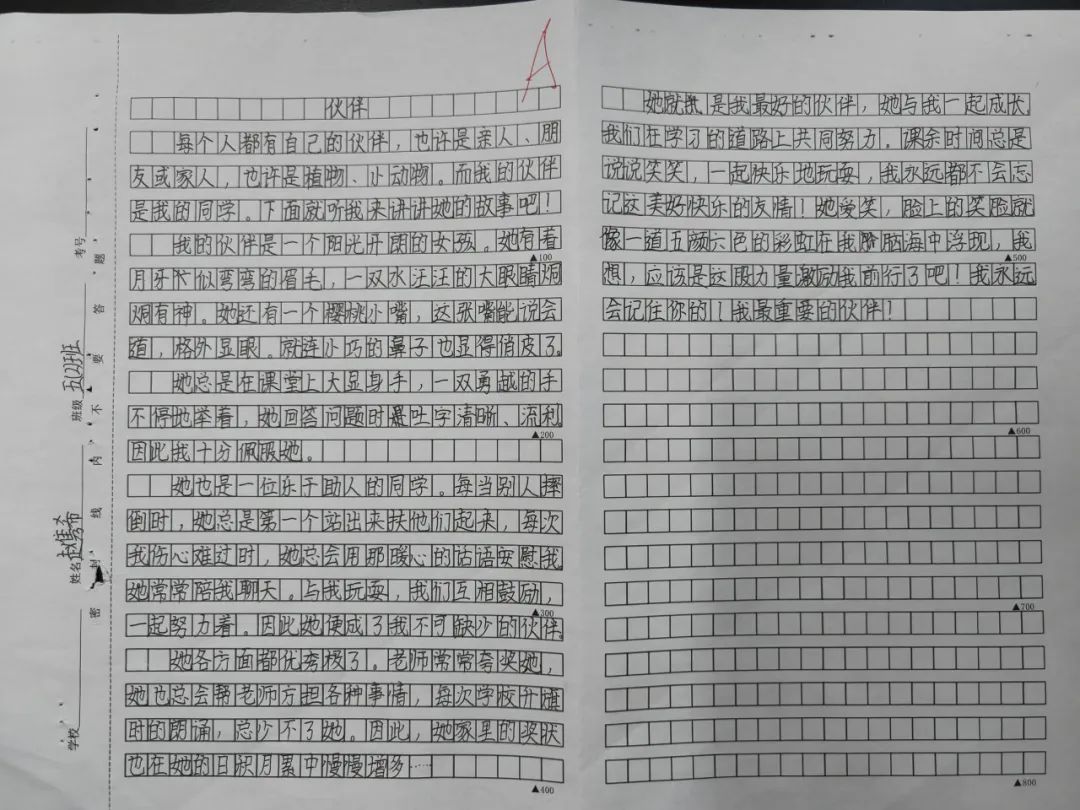 A
伙伴
每个人都有自己的伙伴，也许是亲人、朋
友或家人，也许是植物、小动物。而我的伙伴
是我的同学。下面就听我来讲讲她的故事吧！
我的伙伴是一个阳光开朗的女孩。她有着
▲100
月牙似弯弯的眉毛，一双水汪汪的大眼睛炯
炯有神。她还有一个樱桃小嘴，这张嘴能说会
道，格外显眼。就连小巧的鼻子也显得俏皮了。
她总是在课堂上大显身手，一双勇越的手
不停地举着，她回答问题时是吐字清晰、流利。
▲200
因此我十分佩服她。
她也是一位乐于助人的同学。每当别人摔
倒时，她总是第一个站出来扶他们起来，每次
我伤心难过时，她总会用那暖心的话语安慰我。
她常常陪我聊天。与我玩耍，我们互相鼓励，
▲300
一起努力着。因此她便成了我不可缺少的伙伴。
她各方面都优秀极了。老师常常夸奖她，
她也总会帮老师方担各种事情，每次学校升旗
时的朗诵，总少不了她。因此，她家里的奖状
也在她的日积月累中慢慢增多……
▲400
她就是我最好的伙伴，她与我一起成长。
我们在学习的道路上共同努力。课余时间总是
说说笑笑，一起快乐地玩耍，我永远都不会忘
记这美好快乐的友情！她爱笑，脸上的笑脸就
像一道五颜六色的彩虹在我脑海中浮现，我
▲500
想，应该是这股力量激励我前行了吧！我永远
会记住你的！我最重要的伙伴！
▲600
▲700
▲800
学校
姓名
班级 五(2)班
考号
密 封 线 内 不 要 答 题